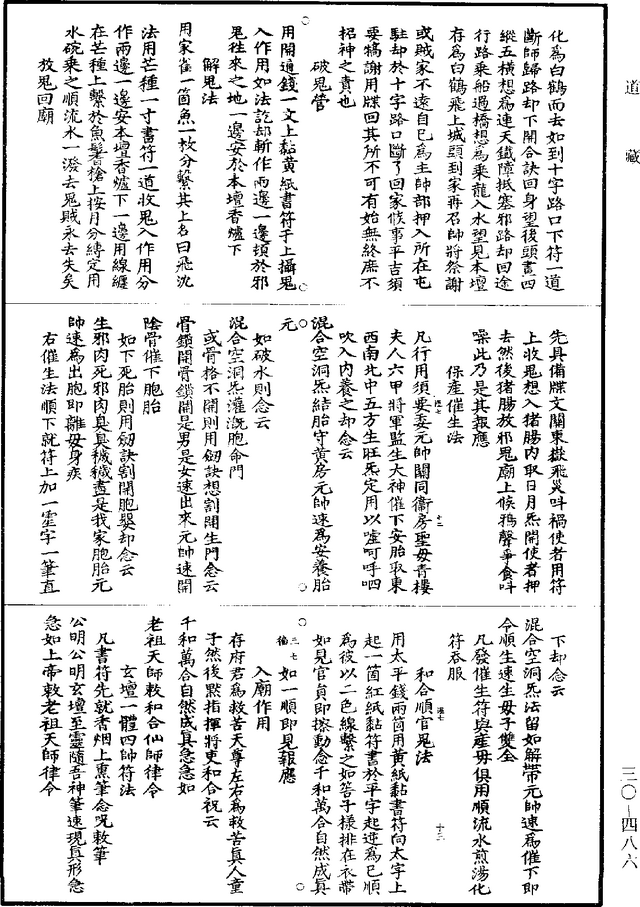 道藏
化為白鶴而去如到十字路口下符一道
斷師歸路却下開合訣回身望後頭畫四
縱五橫想為連天鐵障抵塞邪路却回途
行路乘船過橋想為乘龍入水望見本壇
存為白鶴飛上城頭到家再召帥將祭謝
或賊家不遠自已為主帥部押入所在屯
駐却於十字路口斷了回家候事平吉須
要犒謝用牒回其所不可有始無終庶不
招神之責也
破鬼營
用開通錢一文上黏黃紙書符于上攝鬼
入作用如法訖却斬作兩邊一邊頃於邪
鬼往來之地一邊安於本壇香爐下
解鬼法
用家雀一箇魚一枚分繫其上名曰飛沈
法用芒種一寸書符一道收鬼入作用分
作兩邊一邊安本壇香爐下一邊用線纏
在芒種上繫於魚鬐槍上按月分縳定用
水碗乘之順流水一潑去鬼賊永去失矣
放鬼回廟
先具備牒文關東嶽飛災叫禍使者用符
上收鬼想入猪腸內取日月炁開使者押
去然後猪腸放邪鬼廟上候鴉聲爭食叫
噪此乃是其報應
保產催生法
凡行用須要委元帥關同衞房聖母青樓
夫人六甲將軍監生大神催下安胎取東
西南北中五方生旺炁定用以噓呵呼呬
吹入內養之却念云
混合空洞炁結胎守黃房元帥速為安養胎
元
如破水則念云
混合空洞炁灌溉胞命門
或骨格不開則用劒訣想割開生門念云
骨鎖開骨鎖開是男是女速出來元帥速開
陰骨催下胞胎
如下死胎則用劒訣割開胞器却念云
生邪肉死邪肉臭臭穢穢盡是我家胞胎元
帥速為出胞即離母身疾
右催生法順下就符上加一霊字一筆直
下却念云
混合空洞炁法留如解帶元帥速為催下即
令順生速生母子雙全
凡發催生符與產母俱用順流水煎湯化
符吞服
和合順官鬼法
用太平錢兩箇用黃紙黏書符向太字上
起一箇紅紙黏符書於平字起逆為已順
為彼以二色線繫之如筶子樣排在衣帶
如見官員即擦動念千和萬合自然成真
如一順即見報應
入廟作用
存府君為救苦天尊左右為救苦真人童
子然後㸃指揮將吏和合祝云
千和萬合自然成真急急如
老祖天師敕和合仙師律令
玄壇一體四帥符法
凡書符先就香烟上熏筆念呪敕筆
公明公明玄壇至靈隨吾神筆速現真形急
急如上帝敕老祖天師律令
三〇—四八六